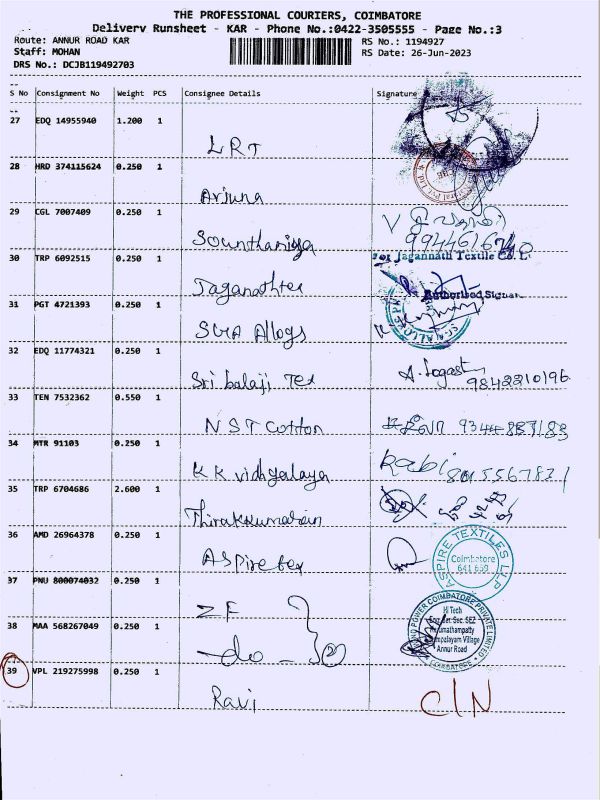 THE PROFESSIONAL COURIERS, COIMBATORE
Delivery Runsheet - KAR - Phone No.:0422-3505555 - Page No.:3
Route: ANNUR ROAD KAR RS No.: 1194927
Staff: MOHAN RS Date: 26-Jun-2023
DRS No.: DCJB119492703
S No Consignment No Weight PCS Consignee Details Signature
27 EDQ 14955940 1.200 1
LRT
28 HRD 374115624 0.250 1
Arjuna
29 CGL 7007409 0.250 1
Sounthaniya
30 TRP 6092515 0.250 1
For Jagannath Textile Co. L
Jaganathtex
Authorised Signat
31 PGT 4721393 0.250 1
Alloys
32 EDQ 11774321 0.250 1
Sri balaji Tex 9842210196
33 TEN 7532362 0.550 1
NST Cotton
34 MTR 91103 0.250 1
KK vidhyalaya Rabi
35 TRP 6704686 2.600 1
Thirakkumaran
36 AMD 26964378 0.250 1
Aspire tex
ASPIRE TEXTILES LLP
Coimbatore
641 659
37 PNU 800074032 0.250 1
ZF
POWER COIMBATORE PRIVATE LIMITED
Hi Tech
Sec. SEZ
Village
Annur Road
COIMBATORE
38 MAA 568267049 0.250 1
-do- 2
39 VPL 219275998 0.250 1
Ravi C/N